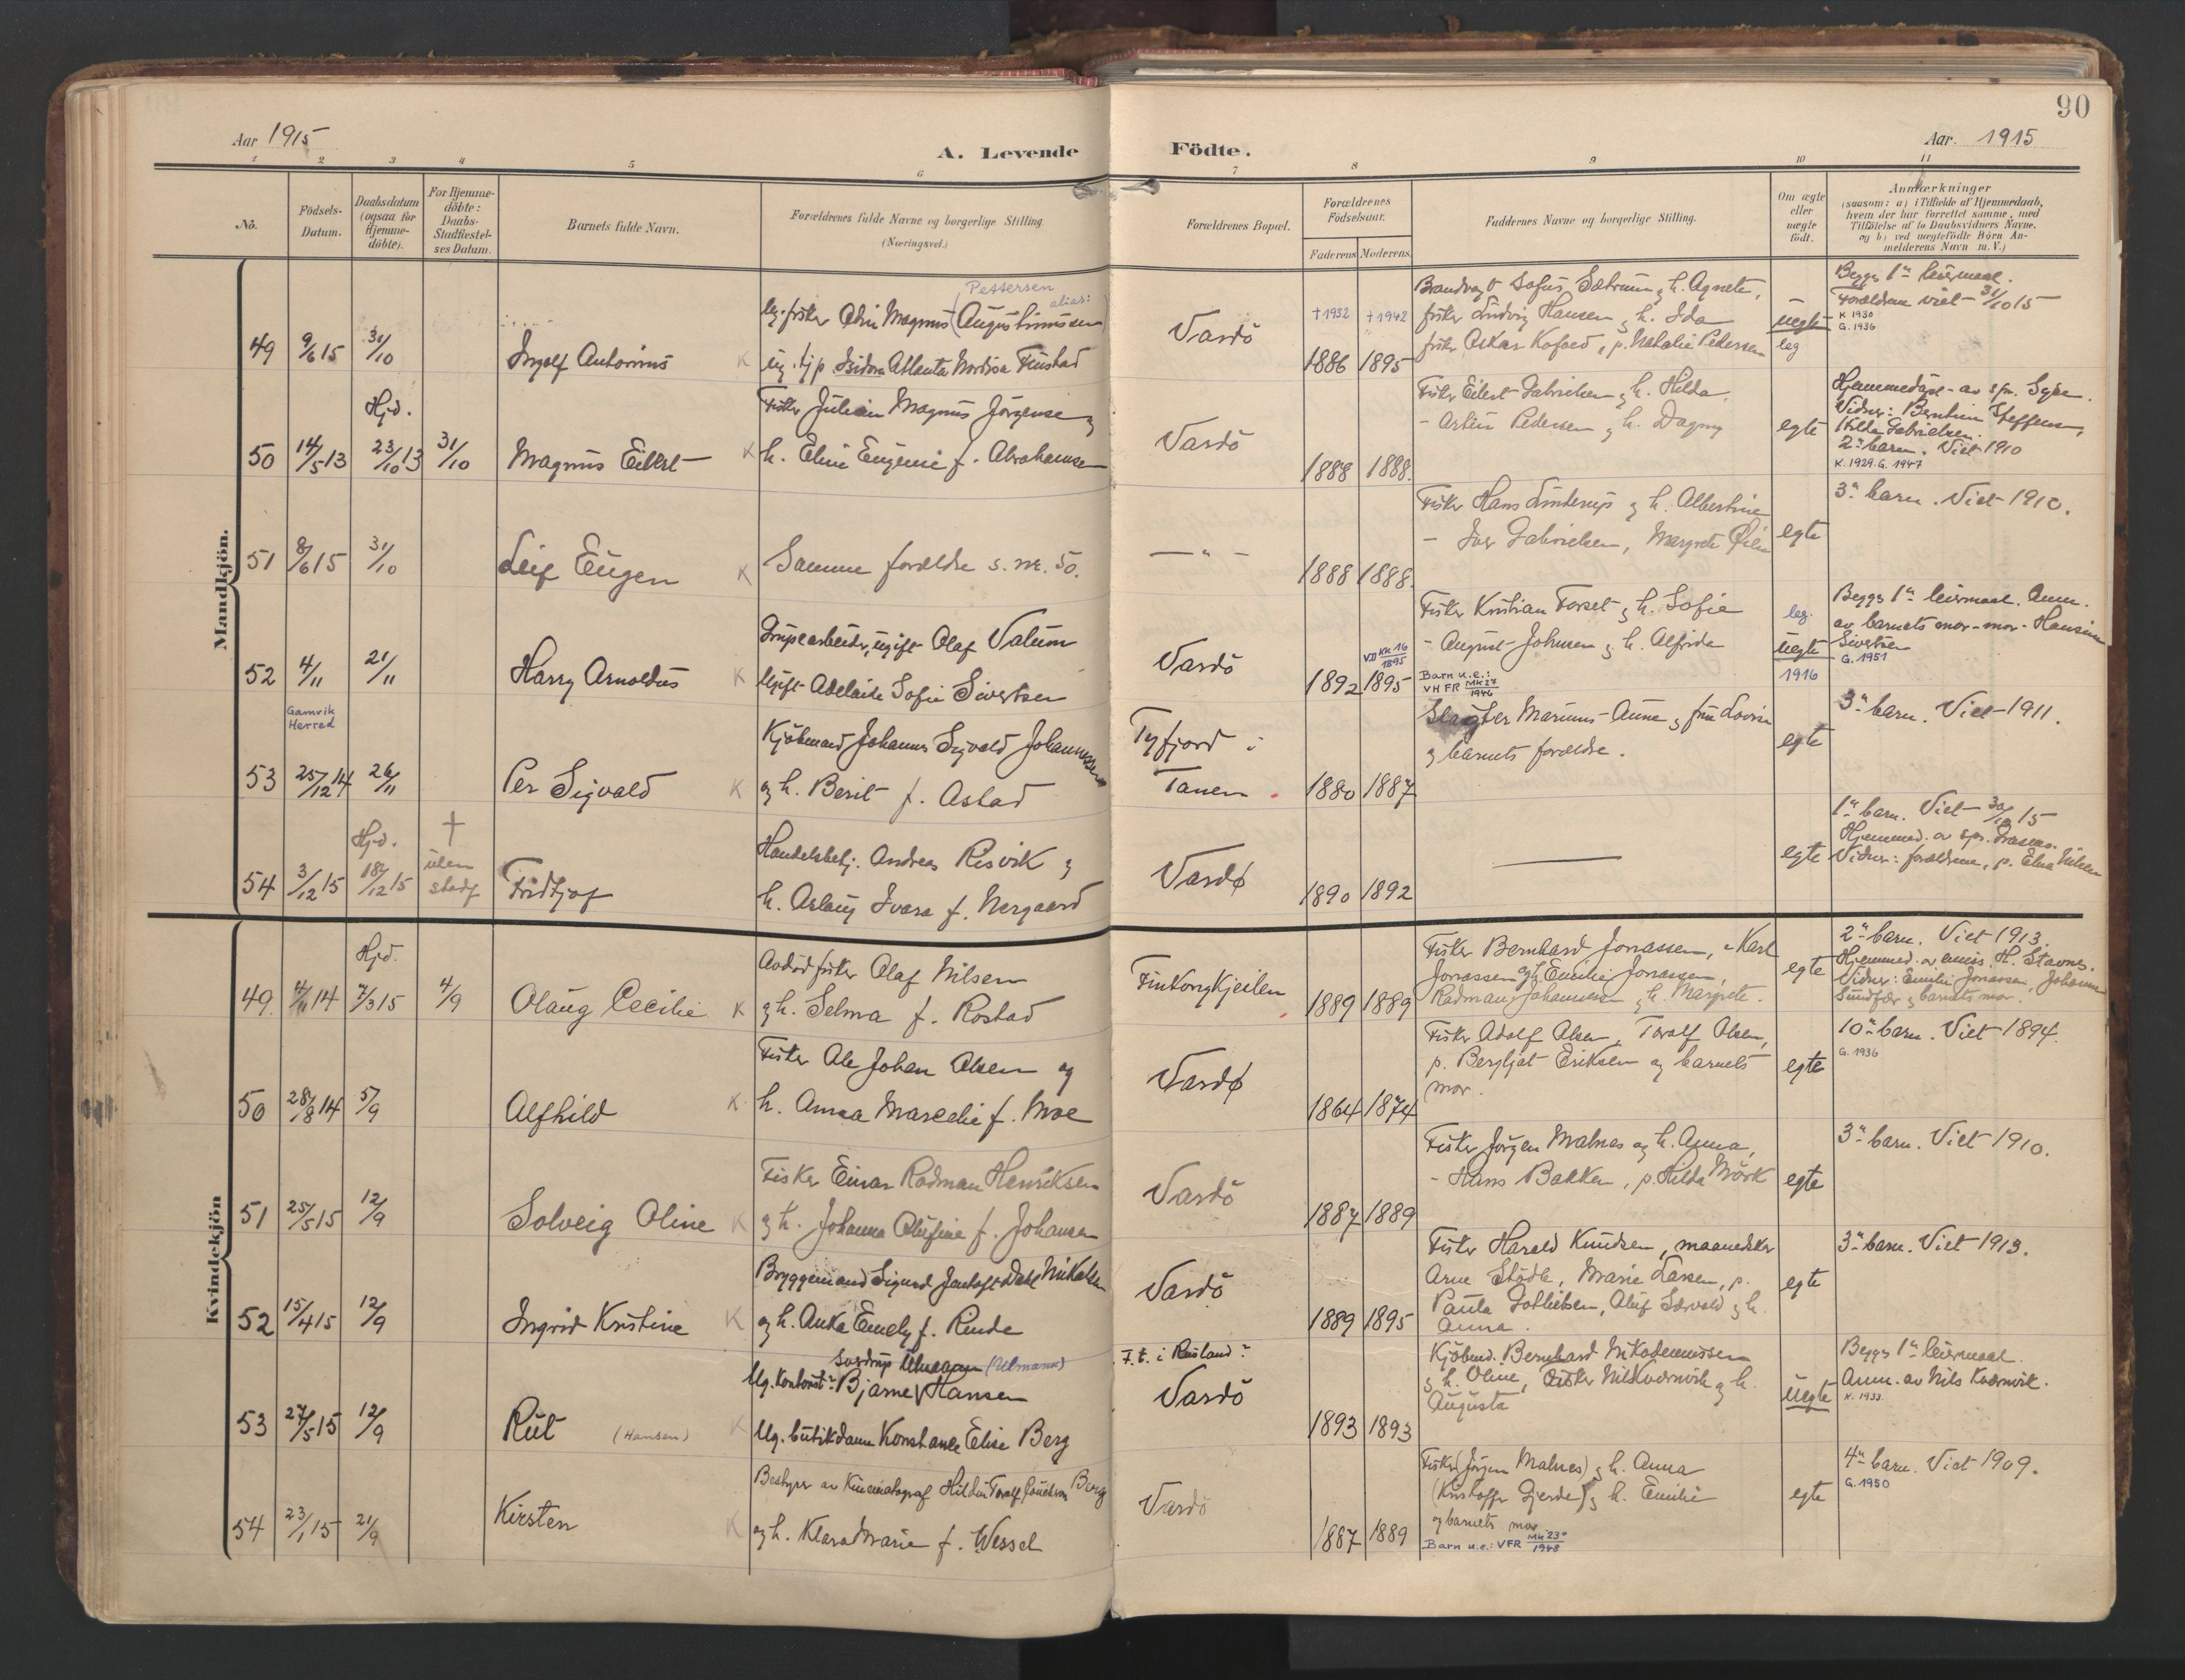 90
Aar 1915
A. Levende Födte.
Aar. 1915
1 2 3 4 5 6 7 8 9 10 11
No.
Födsels-
Datum.
Daabsdatum
(ogsaa for
Hjemme-
döbte).
For Hjemme-
döbte:
Daabs-
Stadfæstel-
ses Datum.
Barnets fulde Navn.
Forældrenes fulde Navne og borgerlige Stilling.
(Næringsvei.)
Forældrenes Bopæl.
Forældrenes
Födselsaar.
Faderens Moderens.
Faddernes Navne og borgerlige Stilling.
Om ægte
eller
uægte
födt.
Anmærkninger
(saasom: a) i Tilfælde af Hjemmedaab,
hvem der har forrettet samme, med
Tilföielse af to Daabsvidners Navne.
og b) ved uægtefödte Börn An-
melderens Navn m. V.)
Mandkjön.
49 9/6 15 31/10 Ingolf Antonius K
Pettersen
alias:
ug. fisker Magnus (Augustinussen)
ug. tjp. Isidora Atlanta Nordvia Finstad
Vardö
†1932 †1942
1886 1895
Brandvagt Sofus Sætrum og h. Agnete,
fisker Ludvig Hansen og h. Ida
fisker Oskar Kofoed, p. Natalie Pedersen
uegte
leg
Begges 1ste leiermaal.
Forældrene viet 31/10 15
K 1930
G. 1936
50 14/5 13 Hjd. 23/10 13 31/10 Magnus Eilert K
Fisker Julian Magnus Jörgensen og
h. Eline Eugenie f. Abrahamsen
Vardö
1888 1888.
Fisker Eilert Gabrielsen og h. Hilda,
- Pedersen og h. Dagny
egte
Hjemmedöpt av
Vidner: Steffensen,
Hilda Gabrielsen.
2det barn. Viet 1910
K. 1929. G. 1947
51 8/6 15 31/10 Leif Eugen K
Samme forældre s. nr. 50.
— " —
1888 1888.
Fisker Hans Linderup og h. Albertine
- Gabrielsen, Margrete
egte
3die barn. Viet 1910.
52 4/11 21/11 Harry Arnoldus K
Grubearbeider, ugift Olaf Valum
Ugift Adelaide Sofie Sivertsen
Vardö
VD KK 16
1895
1892 1895
Fisker Kristian Forset og h. Sofie
- August Johnsen og h. Alfrida
Barn u.e.:
VH FR MK 27
1946
leg.
uegte
1916
Begges 1ste leiermaal. Anm.
av barnets mor-mor Hansine
Sivertsen
G. 1951
Gamvik
Herred
53 25/12 14 26/11 Per Sigvald K
Kjöbmand Johannes Sigvald Johannessen
og h. Berit f. Astad
Tyfjord i
Tanen
1880 1887
Slagter Marinus Aune og fru Lovise
og barnets forældre.
egte
3die barn. Viet 1911.
54 3/12 15 Hjd. 18/12 15 † uten stadf Fridtjof
Handelsbetj. Andreas Risvik og
h. Aslaug Ivara f. Nergaard
Vardø
1890 1892
egte
1ste barn. Viet 30/10 15
Hjemmed. av spr.
Vidner: forældrene, p. Elna Nilsen
Kvindekjön
49. 4/11 14 Hjd. 7/3 15 4/9 Olaug Cecilie K
Avdöd fisker Olaf Nilsen
og h. Selma f. Rostad
Finkongkjeilen
1889 1889
Fisker Bernhard Jonassen, - Karl
Jonassen og h. Emilie Jonassen,
Radman Johannesen og h. Margrete.
egte
2det barn. Viet 1913.
Hjemmed. av emis. H. Stavnes.
Vidner: Emilie Jonassen, Johanne
Sundfær og barnets mor.
50 28/8 14 5/9 Alfhild K
Fisker Ole Johan Olsen og
h. Anna Marselie f. Moe
Vardø
1864 1874
Fisker Adolf Olsen, Toralf Olsen,
p. Bergljot Eriksen og barnets
mor.
egte
10de barn. Viet 1894.
G. 1936
51 25/5 15 12/9 Solveig Oline K
Fisker Einar Radman Henriksen
og h. Johanna Olufine f. Johansen
Vardö
1887 1889
Fisker Jörgen Malnes og h. Anna,
- Hans Bakken, p. Hilda Mörk
egte
3die barn. Viet 1910.
52 15/4 15 12/9 Ingrid Kristine K
Bryggemand Sigurd Jentoft Dahl Mikalsen
og h. Anka Emely f. Rinde
Vardö
1889 1895
Fisker Harald Knudsen, maanedsker
Arne Stödle, Marie Larsen, p.
Paula Gotliebsen, Oluf Særvold og h.
Anna.
egte
3die barn. Viet 1913.
53 27/5 15 12/9 Rut (Hansen) K
Sverdrup (Ulmann)
Ug. kontorist Bjarne Hansen
Ug. butikdame Konstance Elise Berg
F. t. i Rusland?
Vardö
1893 1893
Kjöbmd. Bernhard Nikodemussen
og h. Oline, Fisker Nils Kvernvik og h.
Augusta
uegte
Begges 1ste leiermaal.
Anm. av Nils Kvernvik.
K. 1933.
54 23/1 15 21/9 Kirsten K
Bestyrer av Kinematograf Toralf Berg
og h. Klara Marie f. Wessel
Vardö
1887 1889
Fisker (Jörgen Malnes) og h. Anna
(Kristoffer Gjerde) og h. Emilie
og barnets mor
Barn u.e.: VFR MK 23
1948
egte
4de barn. Viet 1909.
G. 1950